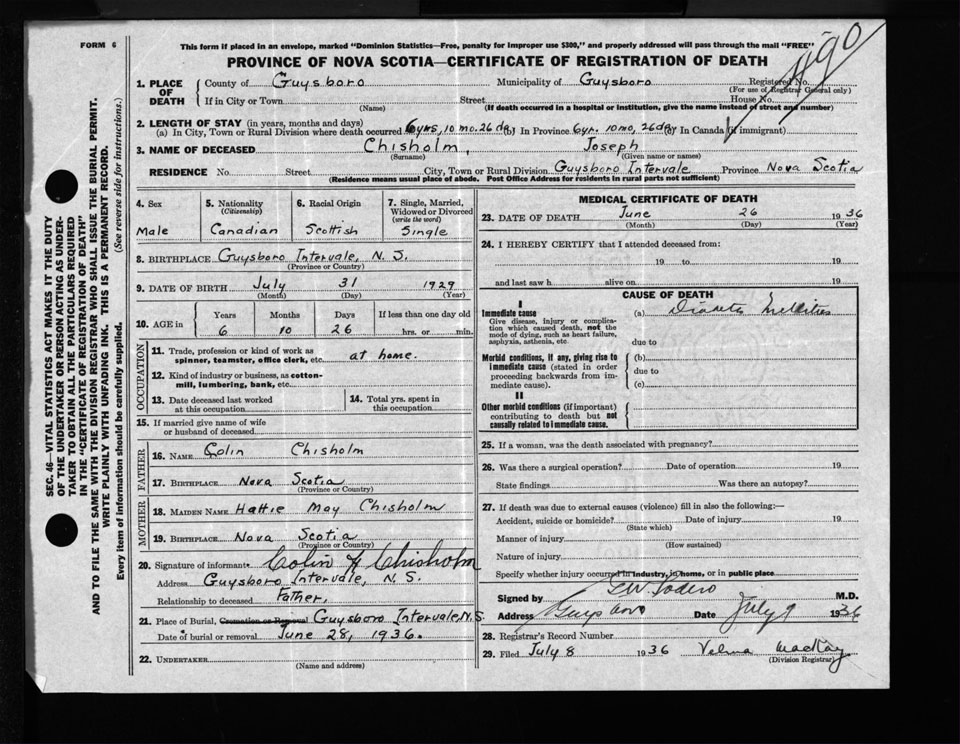 FORM 6
490
This form if placed in an envelope, marked "Dominion Statistics—Free, penalty for improper use $300," and properly addressed will pass through the mail "FREE"
PROVINCE OF NOVA SCOTIA—CERTIFICATE OF REGISTRATION OF DEATH
1. PLACE OF DEATH
County of Guysboro Municipality of Guysboro Registered No.
(For use of Registrar General only)
If in City or Town Street House No.
(Name) (If death occurred in a hospital or institution, give the name instead of street and number)
2. LENGTH OF STAY (in years, months and days)
(a) In City, Town or Rural Division where death occurred 6 yrs, 10 mo. 26 da. (b) In Province 6 yr. 10 mo, 26 da (c) In Canada (if immigrant)
3. NAME OF DECEASED Chisholm, Joseph
(Surname) (Given name or names)
RESIDENCE No. Street City, Town or Rural Division Guysboro Intervale Province Nova Scotia
(Residence means usual place of abode. Post Office Address for residents in rural parts not sufficient)
4. Sex
Male
5. Nationality
(Citizenship)
Canadian
6. Racial Origin
Scottish
7. Single, Married, Widowed or Divorced
(write the word)
Single
8. BIRTHPLACE Guysboro Intervale, N. S.
(Province or Country)
9. DATE OF BIRTH July 31 1929
(Month) (Day) (Year)
10. AGE in
Years Months Days If less than one day old
6 10 26 hrs. or min.
OCCUPATION
11. Trade, profession or kind of work as spinner, teamster, office clerk, etc. at home.
12. Kind of industry or business, as cotton-mill, lumbering, bank, etc.
13. Date deceased last worked at this occupation
14. Total yrs. spent in this occupation
15. If married give name of wife or husband of deceased
FATHER
16. NAME Colin Chisholm
17. BIRTHPLACE Nova Scotia
(Province or Country)
MOTHER
18. MAIDEN NAME Hattie May Chisholm
19. BIRTHPLACE Nova Scotia
(Province or Country)
20. Signature of informant Colin H Chisholm
Address Guysboro Intervale, N. S.
Relationship to deceased Father,
21. Place of Burial, Cremation or Removal Guysboro Intervale, N.S.
Date of burial or removal June 28, 1936.
22. UNDERTAKER
(Name and address)
MEDICAL CERTIFICATE OF DEATH
23. DATE OF DEATH June 26 1936
(Month) (Day) (Year)
24. I HEREBY CERTIFY that I attended deceased from:
19 to 19
and last saw h alive on 19
CAUSE OF DEATH
I
Immediate cause
Give disease, injury or complication which caused death, not the mode of dying, such as heart failure, asphyxia, asthenia, etc.
(a) Diabetes Mellitus
due to
Morbid conditions, if any, giving rise to immediate cause (stated in order proceeding backwards from immediate cause).
(b)
due to
(c)
II
Other morbid conditions (if important) contributing to death but not causally related to immediate cause.
25. If a woman, was the death associated with pregnancy?
26. Was there a surgical operation? Date of operation 19
State findings Was there an autopsy?
27. If death was due to external causes (violence) fill in also the following:—
Accident, suicide or homicide? Date of injury 19
(State which)
Manner of injury
(How sustained)
Nature of injury
Specify whether injury occurred in industry, in home, or in public place
Signed by M.D.
Address Guysboro Date July 9 1936
28. Registrar's Record Number
29. Filed July 8 1936 Velma MacKay
(Division Registrar)
SEC. 46—VITAL STATISTICS ACT MAKES IT THE DUTY
OF THE UNDERTAKER OR PERSON ACTING AS UNDER-
TAKER TO OBTAIN ALL THE PARTICULARS REQUIRED
IN THE "CERTIFICATE OF REGISTRATION OF DEATH"
AND TO FILE THE SAME WITH THE DIVISION REGISTRAR WHO SHALL ISSUE THE BURIAL PERMIT.
WRITE PLAINLY WITH UNFADING INK. THIS IS A PERMANENT RECORD.
Every item of information should be carefully supplied. (See reverse side for instructions.)